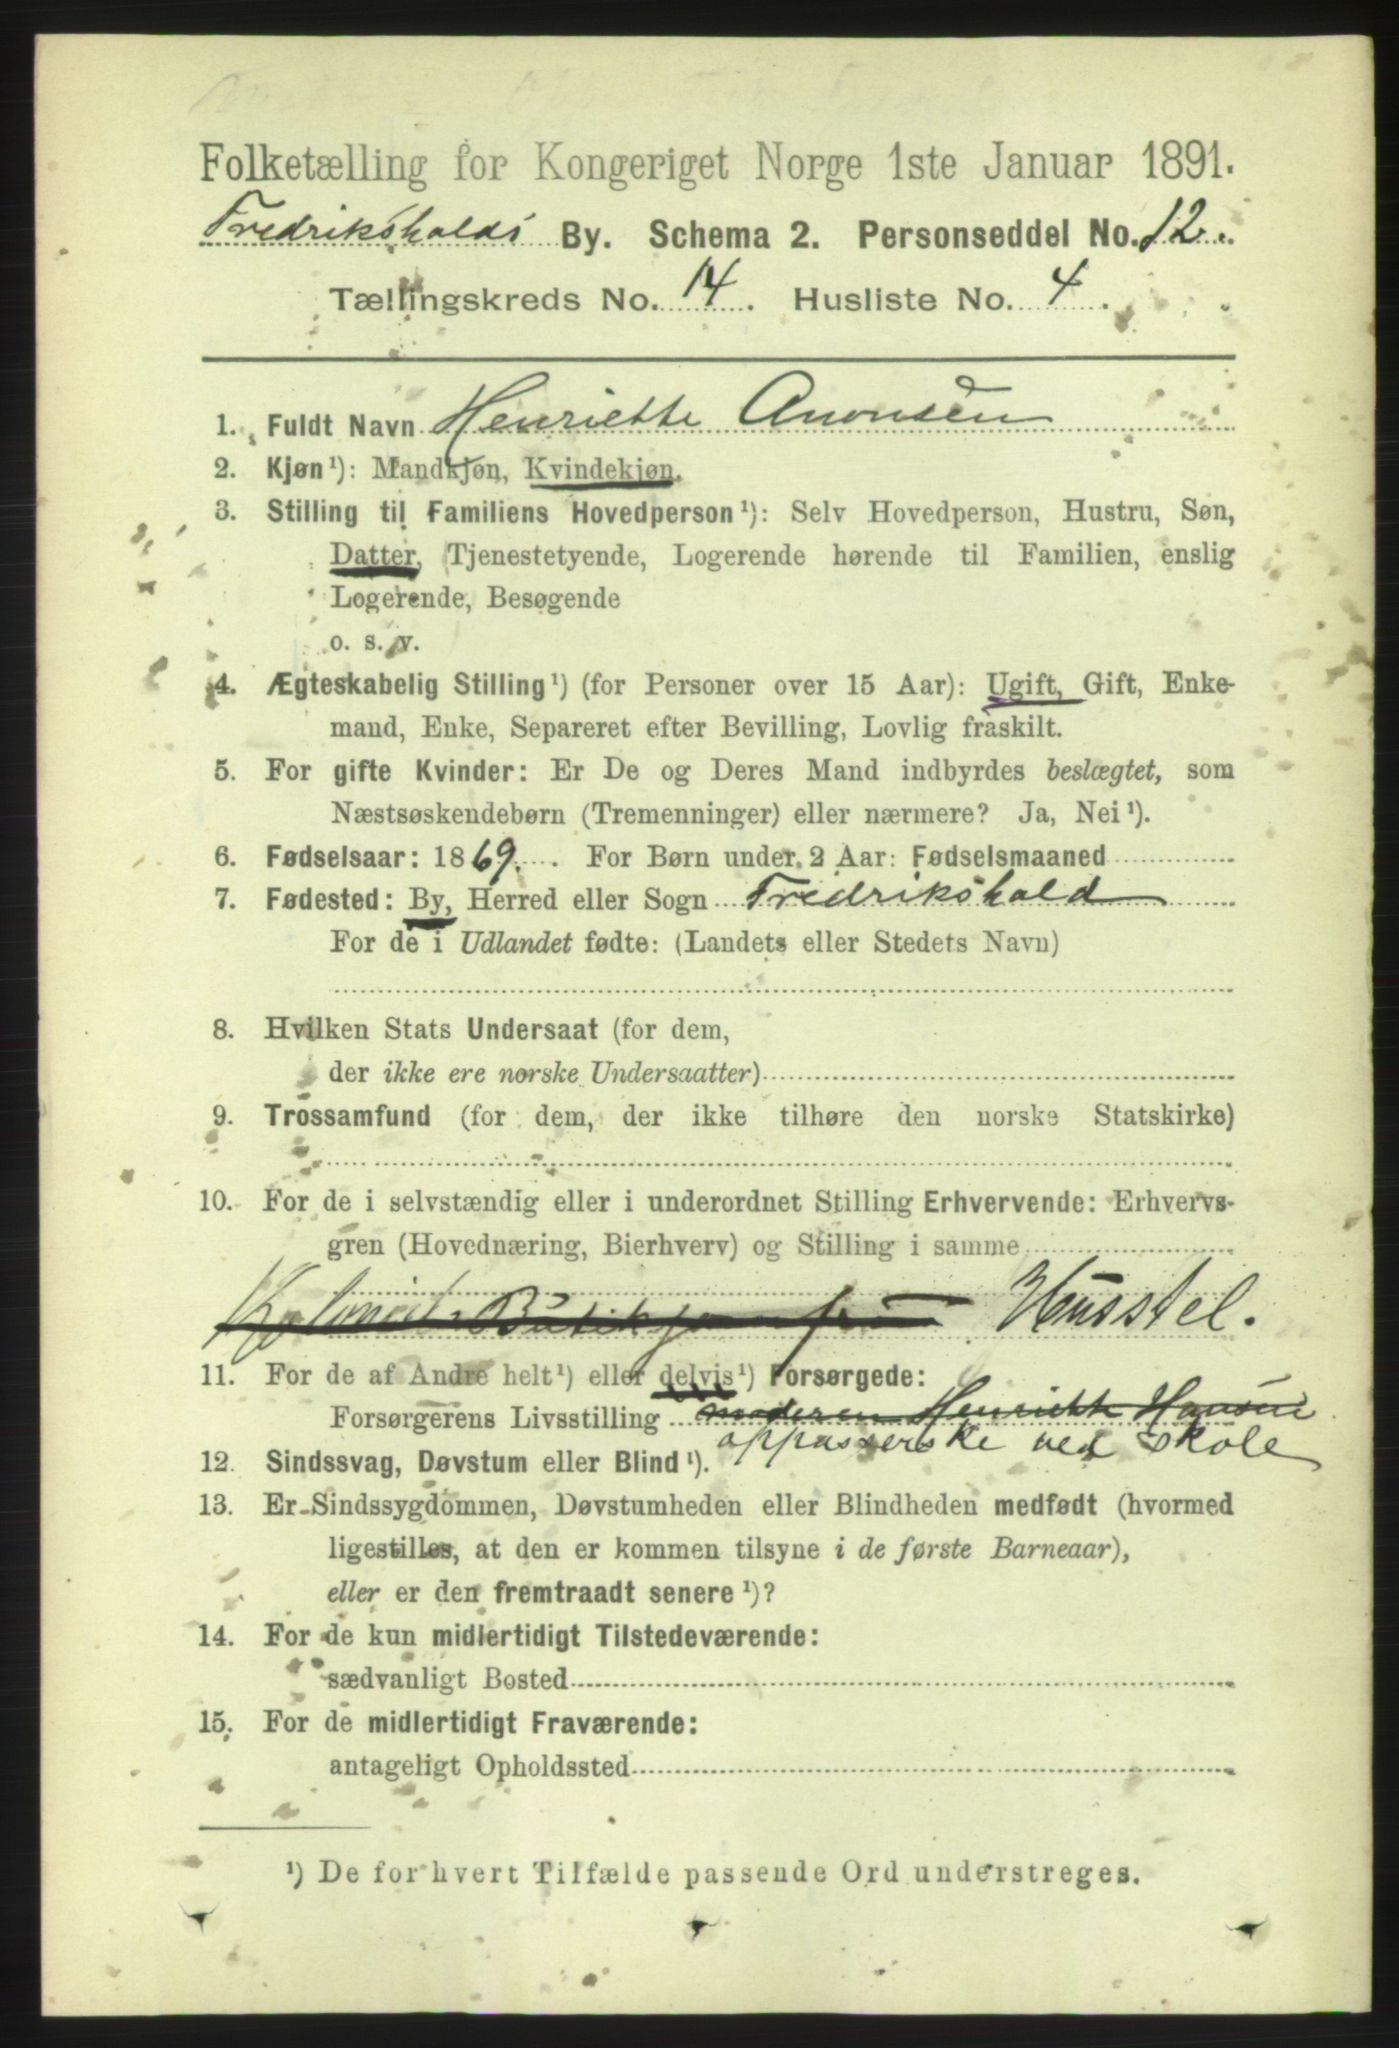 Folketælling for Kongeriget Norge 1ste Januar 1891.
Fredrikshalds By. Schema 2. Personseddel No. 12.
Tællingskreds No. 14. Husliste No. 4.
1. Fuldt Navn Henriette Anonsen
2. Kjøn¹): Mandkjøn, Kvindekjøn.
3. Stilling til Familiens Hovedperson¹): Selv Hovedperson, Hustru, Søn,
Datter, Tjenestetyende, Logerende hørende til Familien, enslig
Logerende, Besøgende
o. s. v.
4. Ægteskabelig Stilling¹) (for Personer over 15 Aar): Ugift, Gift, Enke-
mand, Enke, Separeret efter Bevilling, Lovlig fraskilt.
5. For gifte Kvinder: Er De og Deres Mand indbyrdes beslægtet, som
Næstsøskendebørn (Tremenninger) eller nærmere? Ja, Nei¹).
6. Fødselsaar: 1869. For Børn under 2 Aar: Fødselsmaaned
7. Fødested: By, Herred eller Sogn Fredrikshald
For de i Udlandet fødte: (Landets eller Stedets Navn)
8. Hvilken Stats Undersaat (for dem,
der ikke ere norske Undersaatter)
9. Trossamfund (for dem, der ikke tilhøre den norske Statskirke)
10. For de i selvstændig eller i underordnet Stilling Erhvervende: Erhvervs-
gren (Hovednæring, Bierhverv) og Stilling i samme
Husstel.
11. For de af Andre helt¹) eller delvis¹) Forsørgede:
Forsørgerens Livsstilling moderen Henriette Hansen
oppasserske ved skole
12. Sindssvag, Døvstum eller Blind¹).
13. Er Sindssygdommen, Døvstumheden eller Blindheden medfødt (hvormed
ligestilles, at den er kommen tilsyne i de første Barneaar),
eller er den fremtraadt senere¹)?
14. For de kun midlertidigt Tilstedeværende:
sædvanligt Bosted
15. For de midlertidigt Fraværende:
antageligt Opholdssted
¹) De for hvert Tilfælde passende Ord understreges.